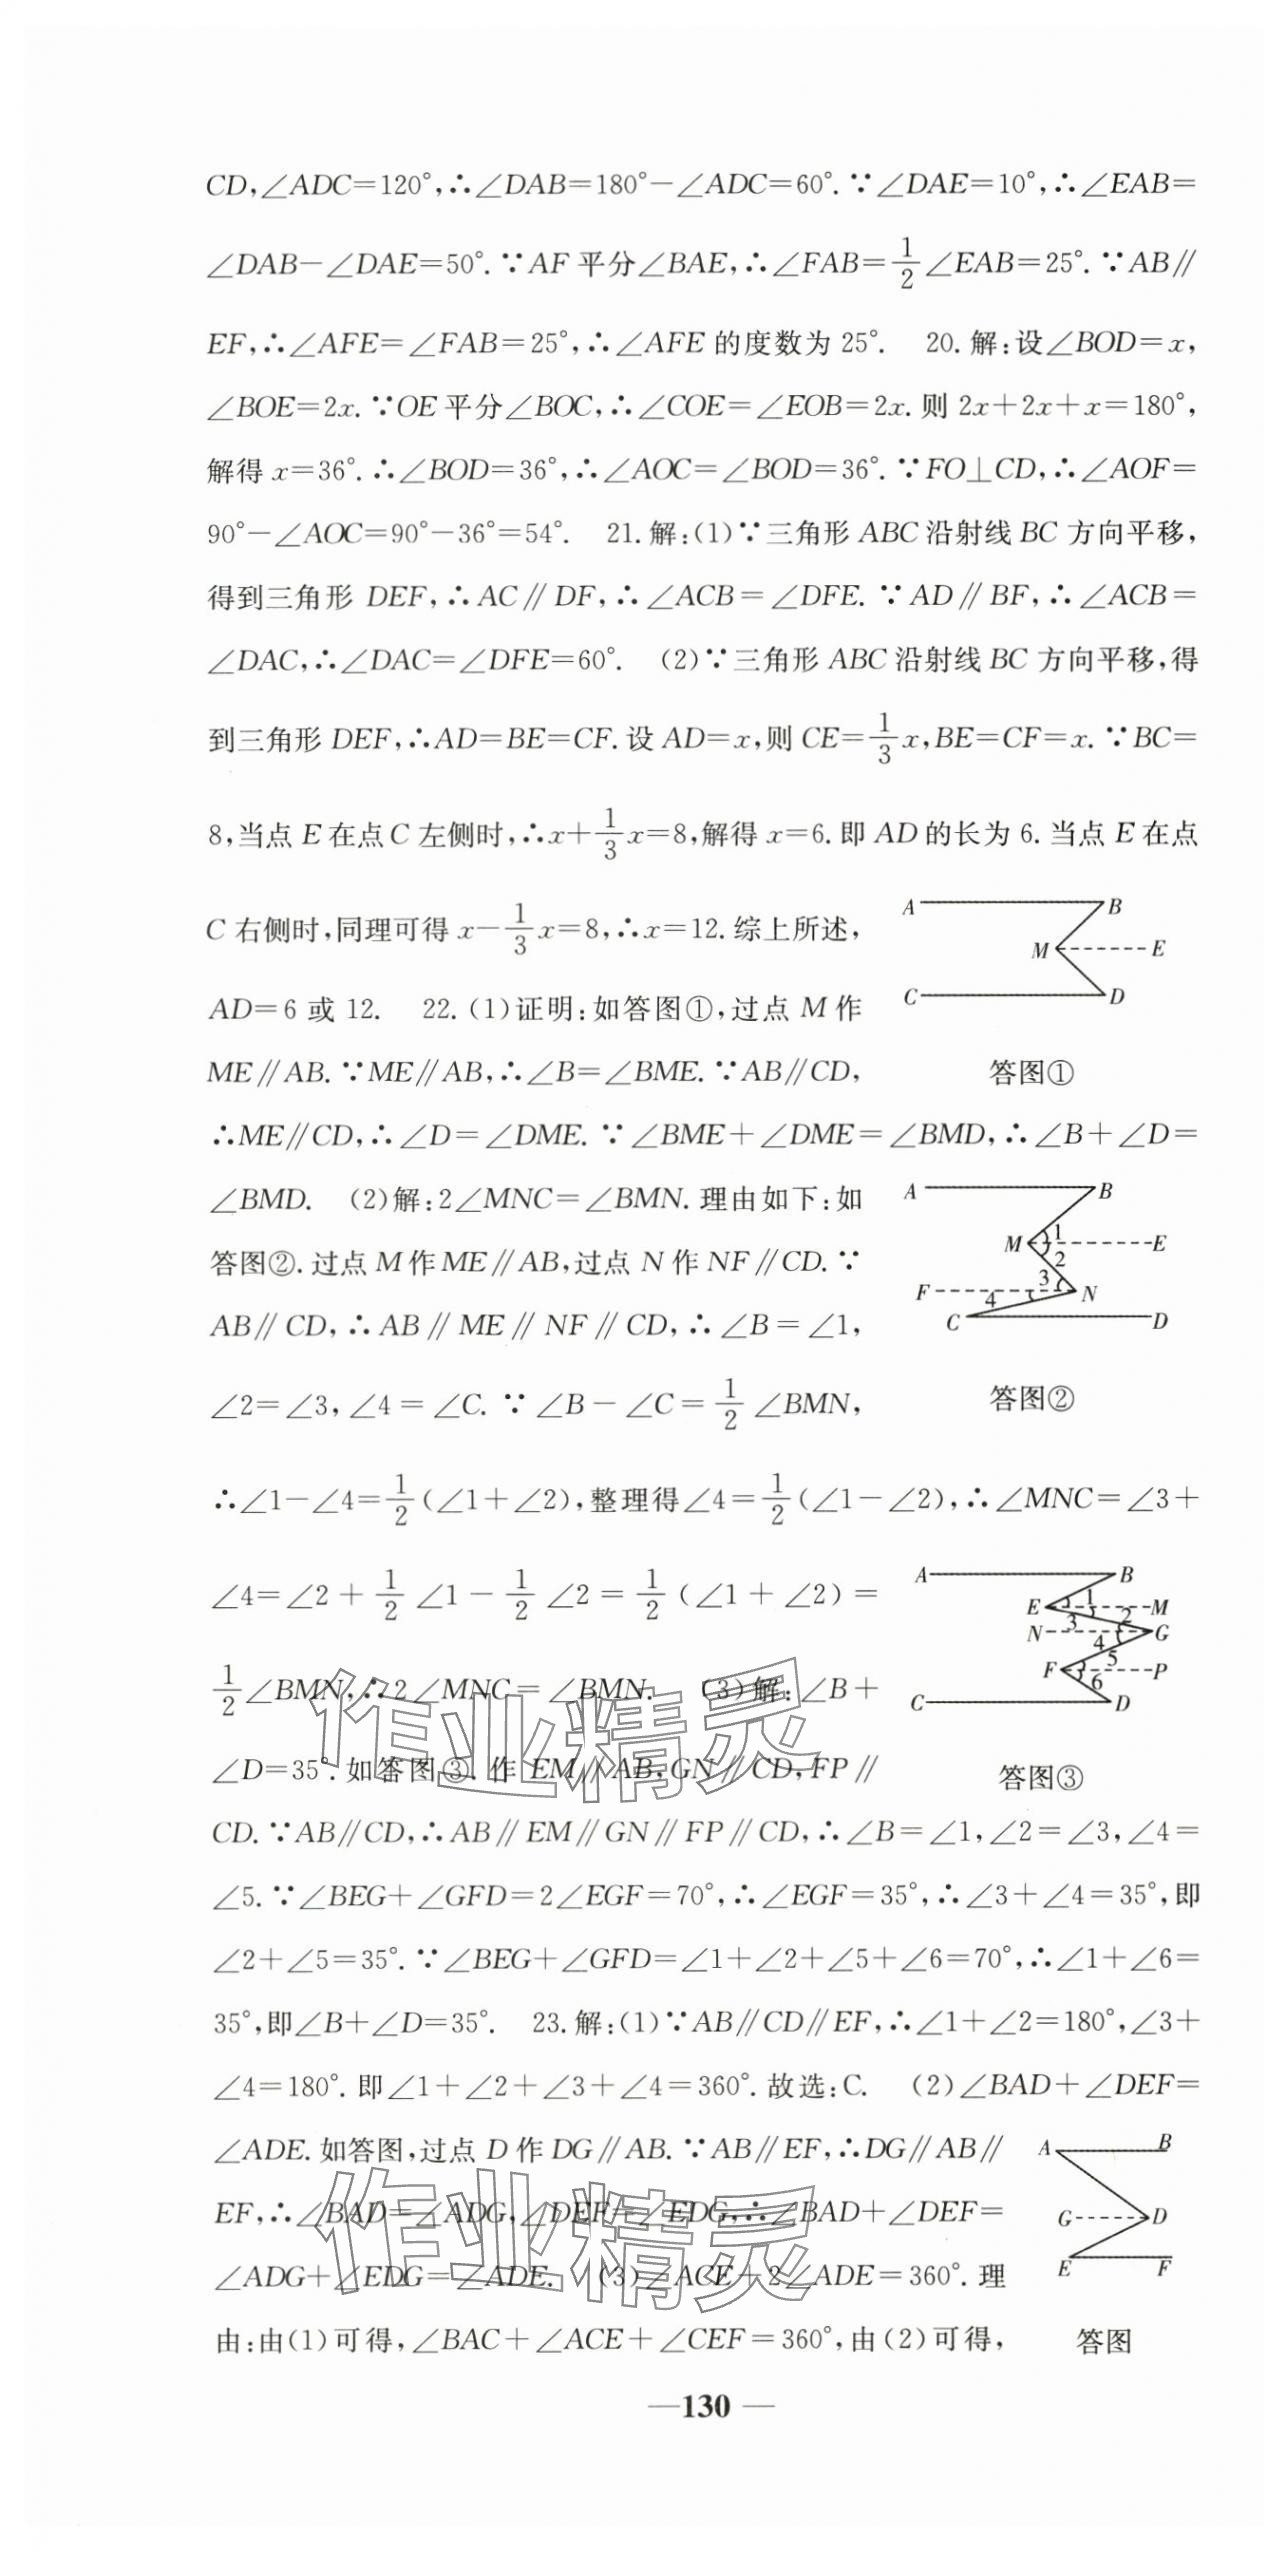 CD,∠ADC=120°,∴∠DAB=180°-∠ADC=60°.∵∠DAE=10°,∴∠EAB=
∠DAB-∠DAE=50°.∵AF平分∠BAE,∴∠FAB=1/2∠EAB=25°.∵AB∥
EF,∴∠AFE=∠FAB=25°,∴∠AFE的度数为25°. 20.解:设∠BOD=x,
∠BOE=2x.∵OE平分∠BOC,∴∠COE=∠EOB=2x.则2x+2x+x=180°,
解得x=36°.∴∠BOD=36°,∴∠AOC=∠BOD=36°.∵FO⊥CD,∴∠AOF=
90°-∠AOC=90°-36°=54°. 21.解:(1)∵三角形ABC沿射线BC方向平移,
得到三角形DEF,∴AC∥DF,∴∠ACB=∠DFE.∵AD∥BF,∴∠ACB=
∠DAC,∴∠DAC=∠DFE=60°. (2)∵三角形ABC沿射线BC方向平移,得
到三角形DEF,∴AD=BE=CF.设AD=x,则CE=1/3x,BE=CF=x.∵BC=
8,当点E在点C左侧时,∴x+1/3x=8,解得x=6.即AD的长为6.当点E在点
C右侧时,同理可得x-1/3x=8,∴x=12.综上所述,
AD=6或12. 22.(1)证明:如答图①,过点M作
ME∥AB.∵ME∥AB,∴∠B=∠BME.∵AB∥CD,
A B
M E
C D
答图①
∴ME∥CD,∴∠D=∠DME.∵∠BME+∠DME=∠BMD,∴∠B+∠D=
∠BMD. (2)解:2∠MNC=∠BMN.理由如下:如
答图②.过点M作ME∥AB,过点N作NF∥CD.∵
AB∥CD,∴AB∥ME∥NF∥CD,∴∠B=∠1,
∠2=∠3,∠4=∠C.∵∠B-∠C=1/2∠BMN,
A B
M 1 E
2
F 3 N
4
C D
答图②
∴∠1-∠4=1/2(∠1+∠2),整理得∠4=1/2(∠1-∠2),∴∠MNC=∠3+
∠4=∠2+1/2∠1-1/2∠2=1/2(∠1+∠2)=
1/2∠BMN,∴2∠MNC=∠BMN. (3)解:∠B+
∠D=35°.如答图③.作EM∥AB,GN∥CD,FP∥
A B
E 1 M
N 3 2 G
4
F 5 P
6
C D
答图③
CD.∵AB∥CD,∴AB∥EM∥GN∥FP∥CD,∴∠B=∠1,∠2=∠3,∠4=
∠5.∵∠BEG+∠GFD=2∠EGF=70°,∴∠EGF=35°,∴∠3+∠4=35°,即
∠2+∠5=35°.∵∠BEG+∠GFD=∠1+∠2+∠5+∠6=70°,∴∠1+∠6=
35°,即∠B+∠D=35°. 23.解:(1)∵AB∥CD∥EF,∴∠1+∠2=180°,∠3+
∠4=180°.即∠1+∠2+∠3+∠4=360°.故选:C. (2)∠BAD+∠DEF=
∠ADE.如答图,过点D作DG∥AB.∵AB∥EF,∴DG∥AB∥
EF,∴∠BAD=∠ADG,∠DEF=∠EDG,∴∠BAD+∠DEF=
∠ADG+∠EDG=∠ADE. (3)∠ACE+2∠ADE=360°.理
由:由(1)可得,∠BAC+∠ACE+∠CEF=360°,由(2)可得,
A B
G D
E F
答图
作业精灵
作业精灵
—130—